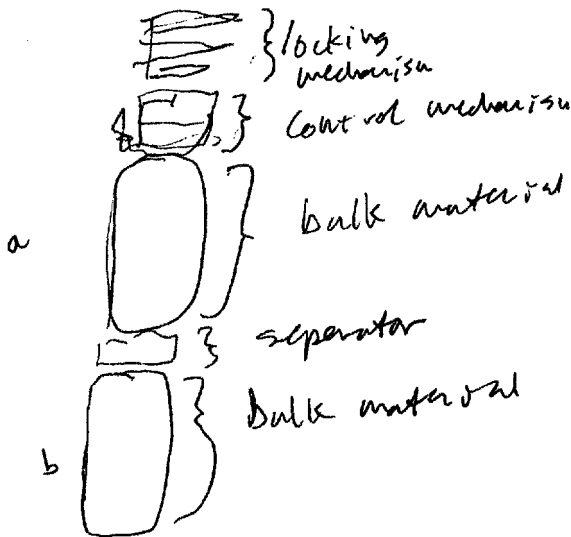 locking
mechanism
control mechanism
bulk material
a
seperator
Bulk material
b